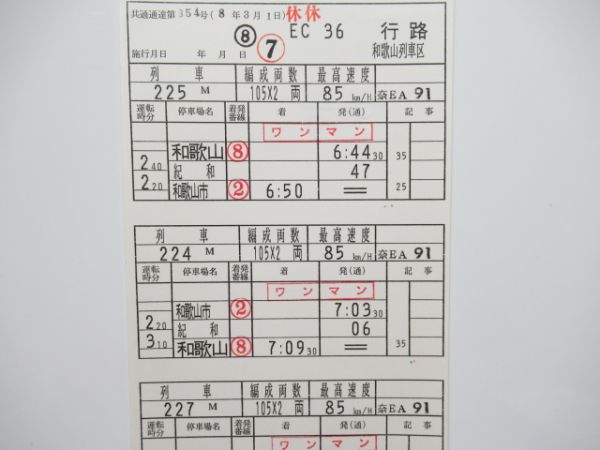 共通通達第354号(8年3月1日) 休休
⑧ EC 36 行路
施行月日 年 月 日 ⑦ 和歌山列車区
列車 編成両数 最高速度
225 M 105X2 両 85 km/H 奈EA 91
運転時分 停車場名 着発番線 着 発(通) 記事
ワンマン
和歌山 ⑧ 6:44 30 35
2 40 紀和 47
2 20 和歌山市 ② 6:50 = 25
列車 編成両数 最高速度
224 M 105X2 両 85 km/H 奈EA 91
運転時分 停車場名 着発番線 着 発(通) 記事
ワンマン
和歌山市 ② 7:03
2 20 紀和 06
3 10 和歌山 ⑧ 7:09 30 = 35
列車 編成両数 最高速度
227 M 105X2 両 85 km/H 奈EA 91
運転時分 停車場名 着発番線 着 発(通) 記事
ワンマン